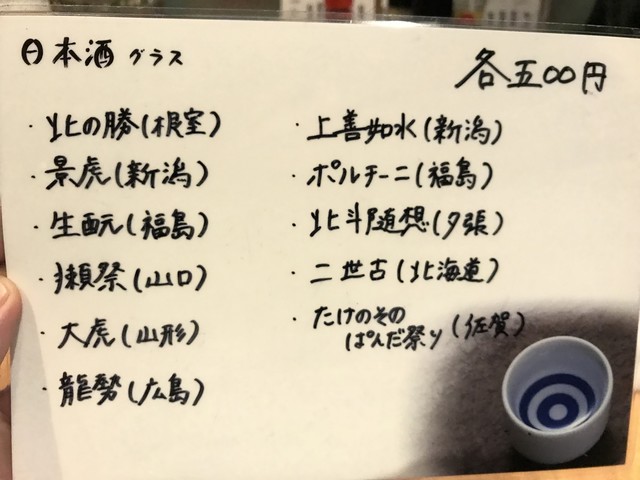 日本酒 グラス
各五〇〇円
・北の勝(根室)
・景虎(新潟)
・生酛(福島)
・獺祭(山口)
・大虎(山形)
・龍勢(広島)
・上善如水(新潟)
・ポルチーニ(福島)
・北斗随想(夕張)
・二世古(北海道)
・たけのその
ぱんだ祭り(佐賀)